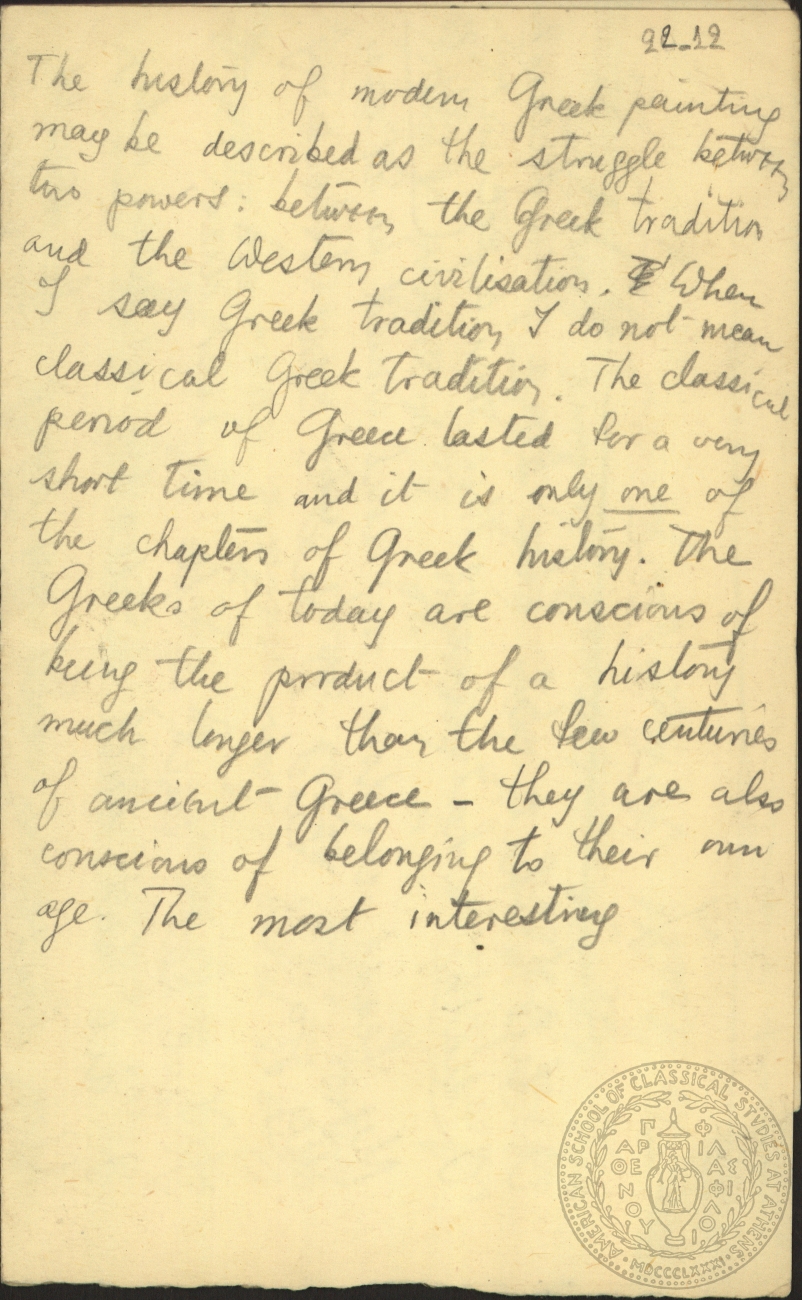 22-12
The history of modern Greek painting
may be described as the struggle between
two powers: between the Greek tradition
and the Western civilisation. When
I say Greek tradition I do not mean
classical Greek tradition. The classical
period of Greece lasted for a very
short time and it is only one of
the chapters of Greek history. The
Greeks of today are conscious of
being the product of a history
much longer than the few centuries
of ancient Greece - they are also
conscious of belonging to their own
age. The most interesting
AMERICAN SCHOOL OF CLASSICAL STUDIES AT ATHENS
MDCCCLXXXI
ΠΑΡΘΕΝΟΥ
ΦΙΛΑΣ ΦΙΛΟΙ